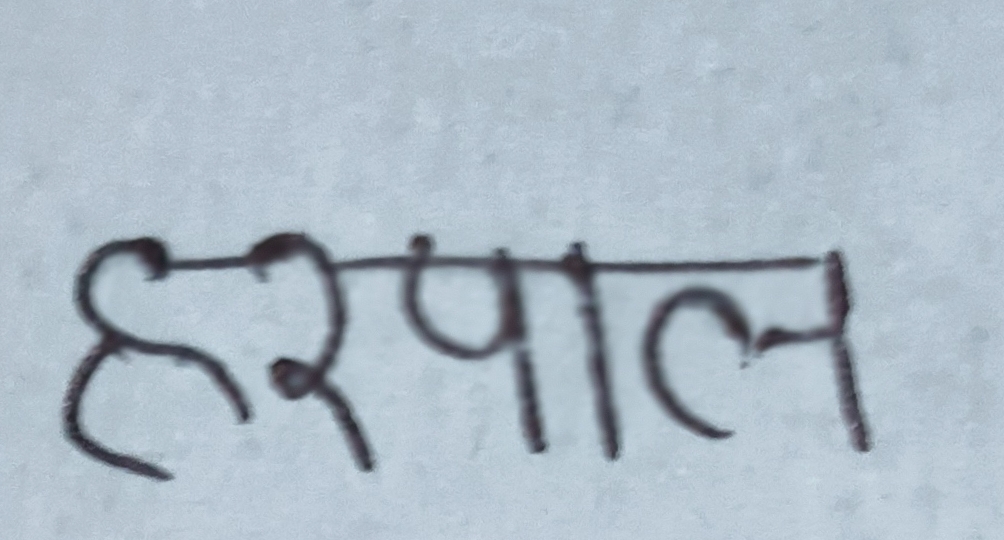 हरपाल